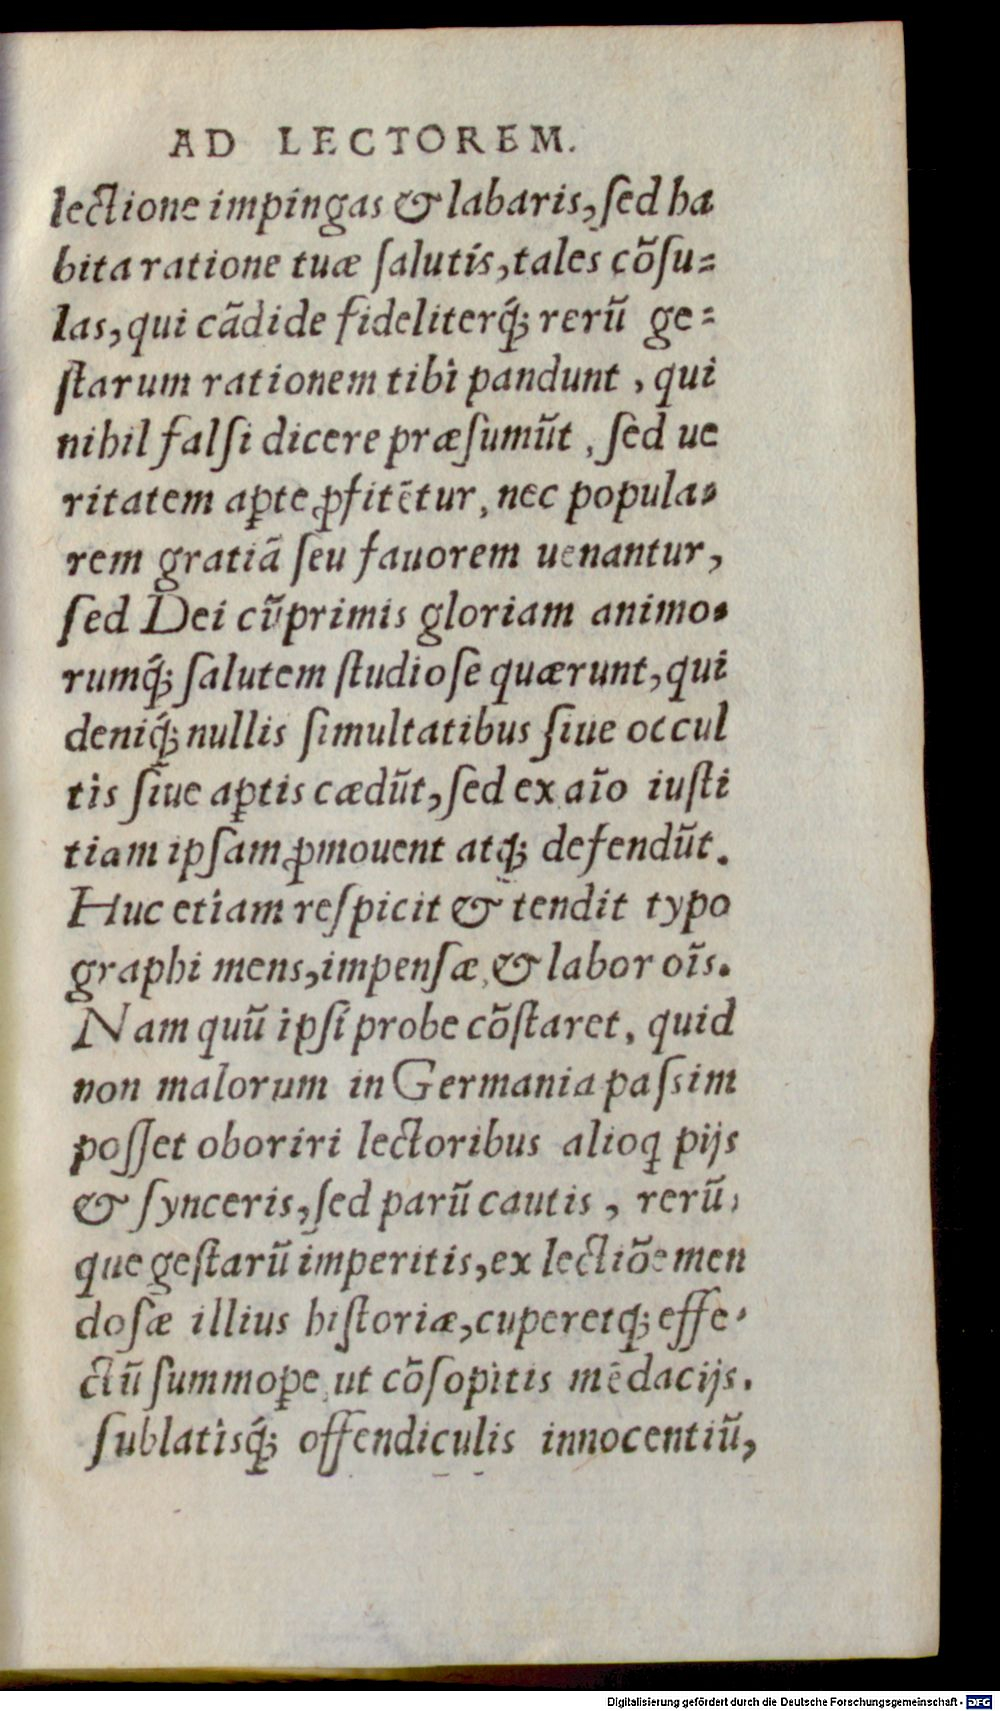 AD LECTOREM.
lectione impingas & labaris, ſed ha
bita ratione tuæ ſalutis, tales cõſu=
las, qui cãdide fideliterq́; rerũ ge=
ſtarum rationem tibi pandunt, qui
nihil falſi dicere præſumũt, ſed ue
ritatem aꝑte ꝓfitẽtur, nec popula=
rem gratiã ſeu fauorem uenantur,
ſed Dei cũprimis gloriam animo=
rumq́; ſalutem ſtudioſe quærunt, qui
deniq́; nullis ſimultatibus ſiue occul
tis ſiue aꝑtis cædũt, ſed ex aĩo iuſti
tiam ipſam ꝓmouent atq; defendũt.
Huc etiam reſpicit & tendit typo
graphi mens, impenſæ, & labor oĩs.
Nam quũ ipſi probe cõſtaret, quid
non malorum in Germania paſsim
poſſet oboriri lectoribus alioq pijs
& ſynceris, ſed parũ cautis, rerũ,
que geſtarũ imperitis, ex lectiõe men
doſæ illius hiſtoriæ, cuperetq́; effe=
ctũ ſummoꝑe ut cõſopitis mẽdacijs.
ſublatisq́; offendiculis innocentiũ,
Digitalisierung gefördert durch die Deutsche Forschungsgemeinschaft - DFG